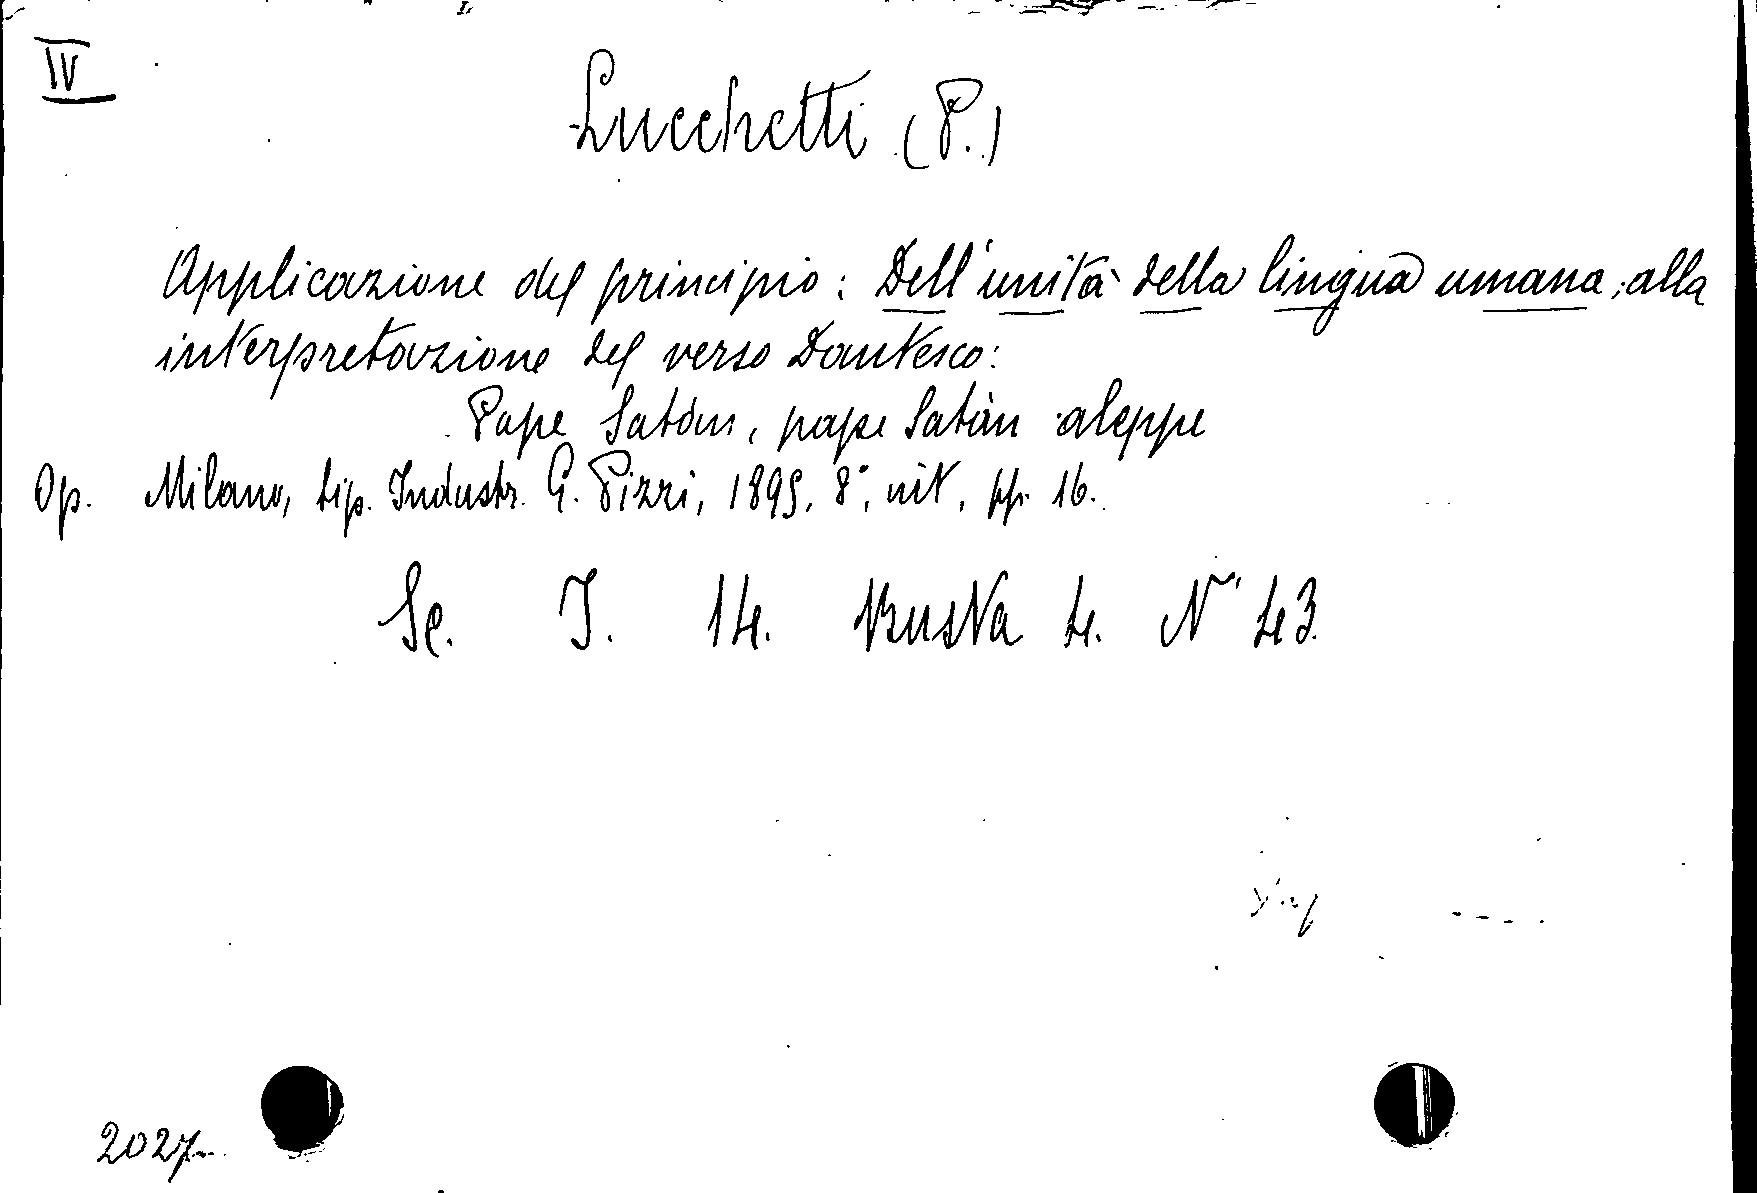 IV
Lucchetti (P.)
Applicazione del principio: Dell'unità della lingua umana, alla
interpretazione del verso Dantesco:
Pape Satàn, pape Satàn aleppe
Op. Milano, tip. Industr. G. Pizzi, 1895, 8°, pp. 16.
Sc. I. 14. Busta 4. N° 43
2027